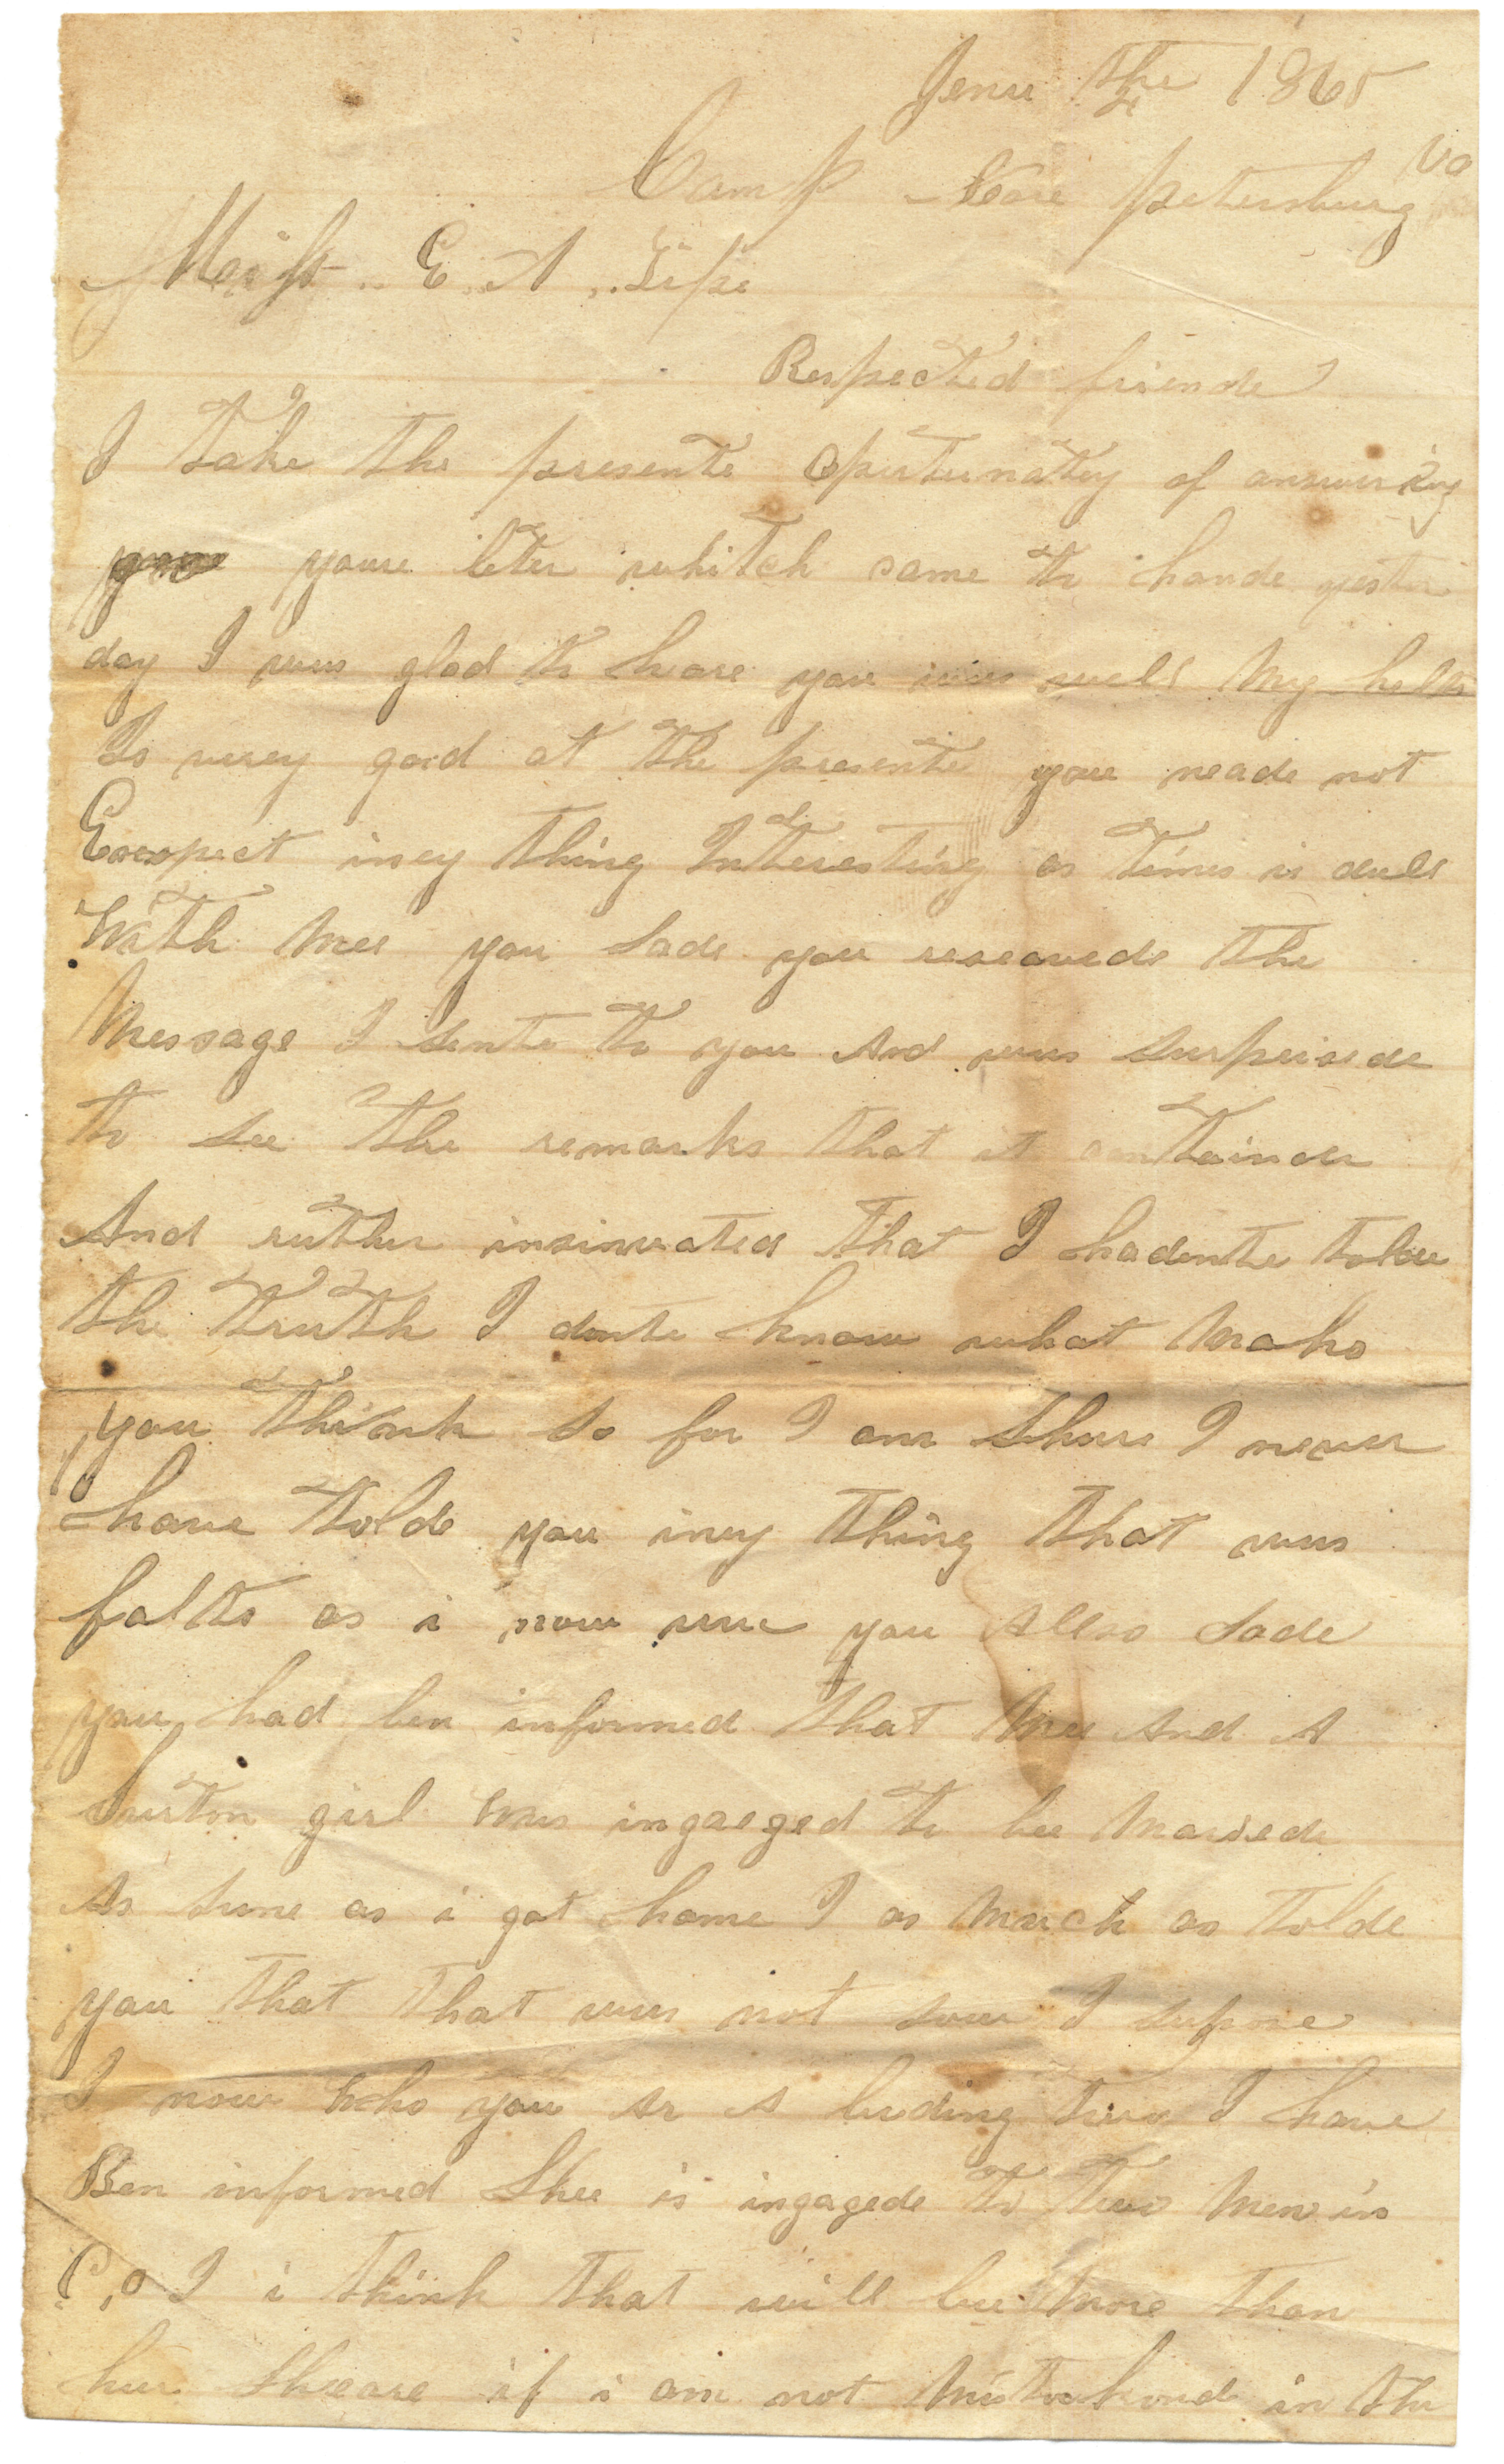 Jenu the 4 1865
Camp Neare petersburg Va
Miss .. E .. A ..
Respected friende
I take the presente Opertunatey of answering
youre leter whitch came to hande yester
day I wus glad to heare you wus well My helth
Is verey good at the presente you neade not
Exexpect iney thing Interesting as times is dull
With Mee you Sade you reseavede the
Message I Sente to you And wus Surprisede
to See the remarks that it containde
And ruther insinuated that I hadente tolde
the truth I donte know what Maks
you think So for I am Shure I never
have tolde you iney thing that wus
falts as i now uv you Allso Sade
you had ben informed that Mee And A
Surton girl Wus ingaeged to bee Maried
As Sune as i got home I as Much as tolde
you that that wus not sow I supose
I now Who you Ar A luding two I have
Ben informed Shee is ingagede to two Men in
C,o I i think that will bee More than
hur Sheare if i am not Mistakend in the